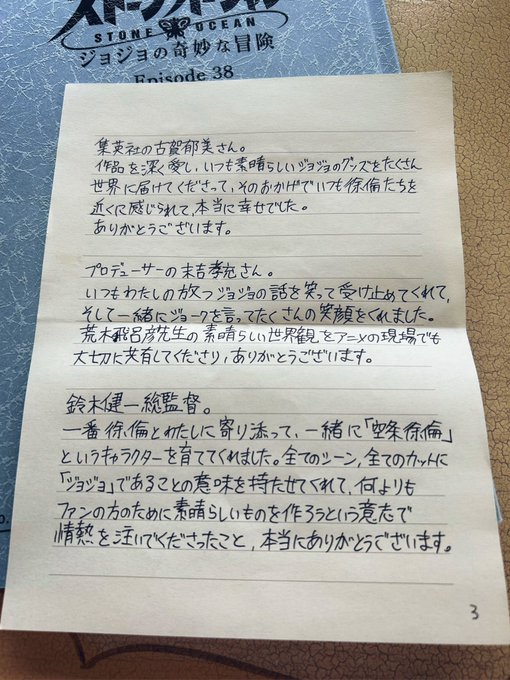 ストーンオーシャン
STONE OCEAN
ジョジョの奇妙な冒険
Episode 38
集英社の古賀郁美さん。
作品を深く愛し、いつも素晴らしいジョジョのグッズをたくさん
世界に届けてくださって、そのおかげでいつも徐倫たちを
近くに感じられて、本当に幸せでした。
ありがとうございます。
プロデューサーの末吉孝充さん。
いつもわたしの放つジョジョの話を笑って受け止めてくれて、
そして一緒にジョークを言ってたくさんの笑顔をくれました。
荒木飛呂彦先生の素晴らしい世界観をアニメの現場でも
大切に共有してくださり、ありがとうございます。
鈴木健一総監督。
一番徐倫とわたしに寄り添って、一緒に「空条徐倫」
というキャラクターを育ててくれました。全てのシーン、全てのカットに
「ジョジョ」であることの意味を持たせてくれて、何よりも
ファンの方のために素晴らしいものを作ろうという意志で
情熱を注いでくださったこと、本当にありがとうございます。
3